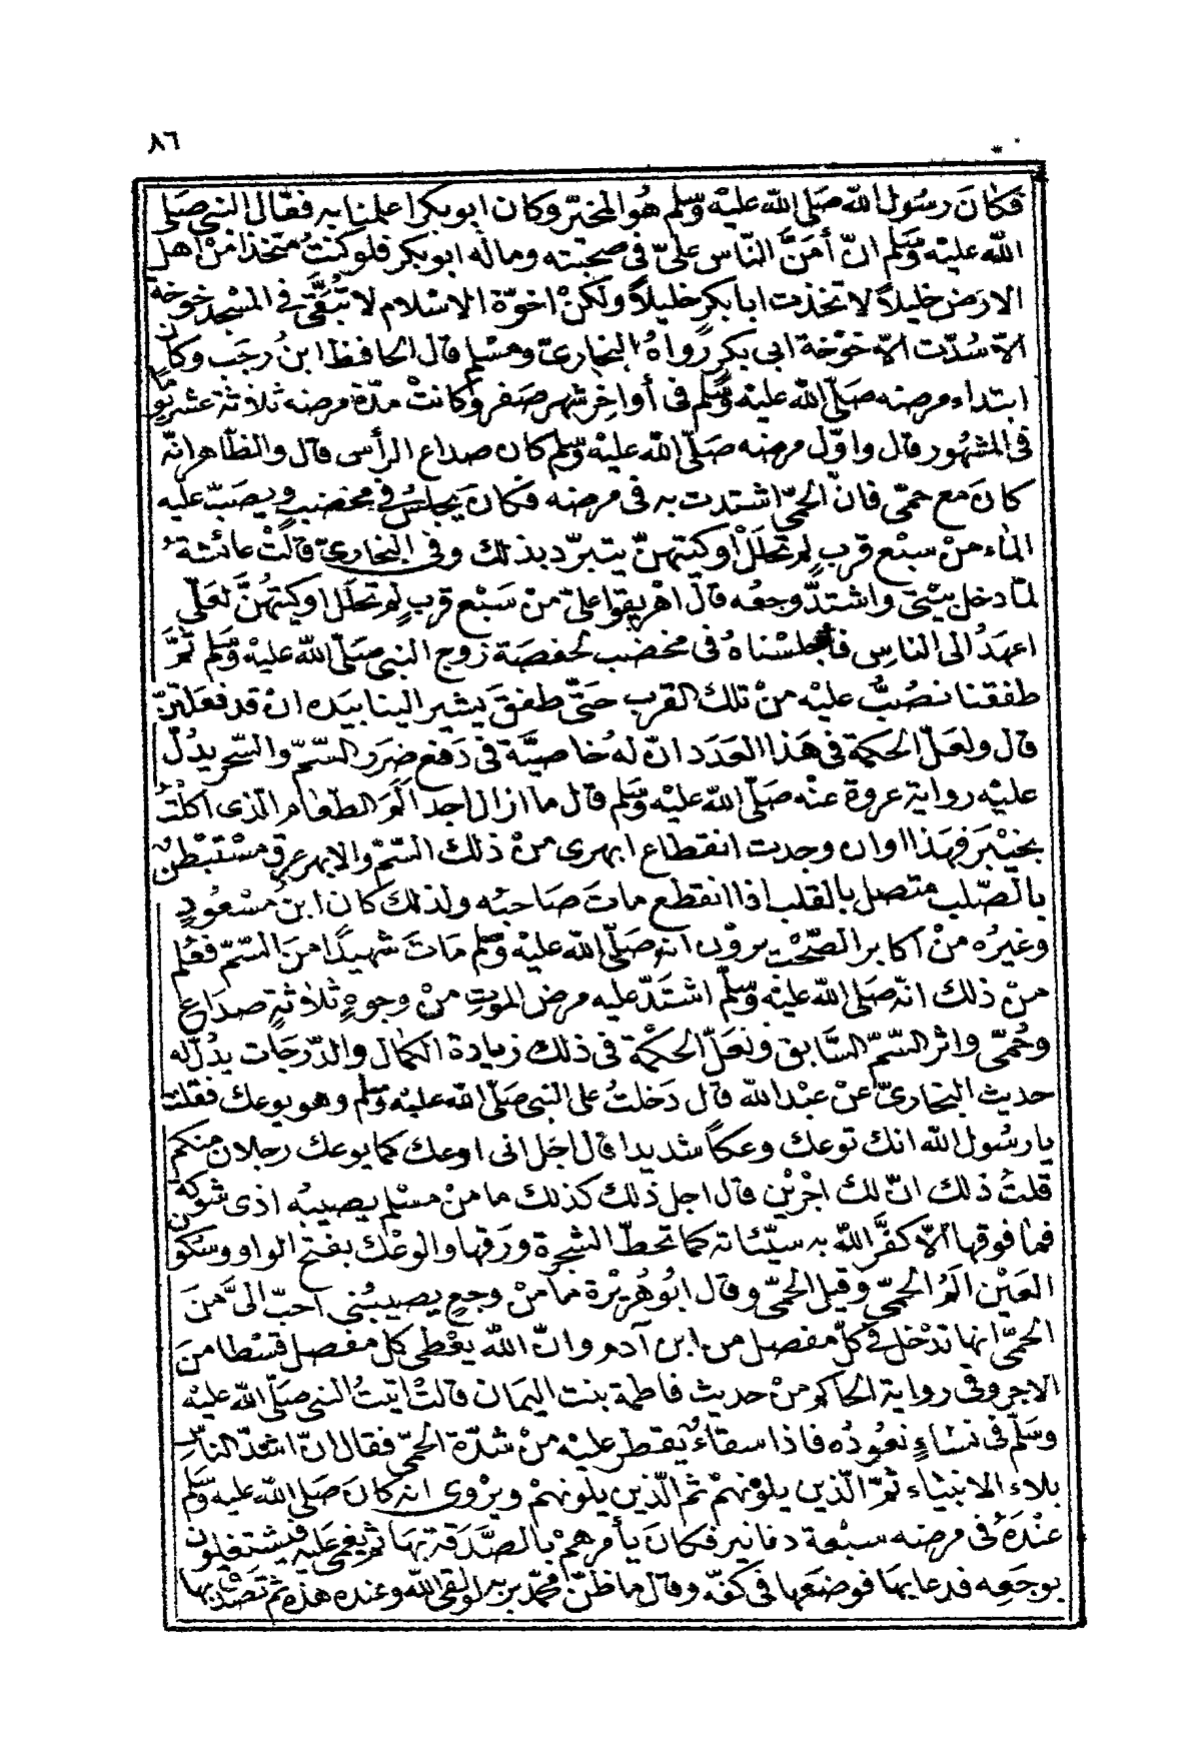 ٨٦
فكَانَ رسُول الله صَلى الله عليْه وَسّلم هُو المخيّر وكان ابو بكر اعلمنا به فقال النبى صَلى
الله عليْه وَسّلم انّ أمَنَّ النّاس علىّ فى صحبته وماله ابو بكر فلو كنتُ متخذا منْ اهل
الارض خليلاً لاتخذت ابا بكر خليلاً ولكنْ اخوّة الاسْلام لا تبْقىَّ فى المسْجد خوخة
الاّ سُدّت الاّ خوْخة ابى بكرٍ رواهُ البخارىّ ومسْلم قال الحافظ ابنُ رجَب وكان
ابتداء مرضه صَلّى الله عليْه وَسّلم فى أواخِر شهر صَفر وكانتْ مدّة مرضه ثلاثة عشر يوما
فى المشهُور قال واوّل مرضه صَلّى الله عليْه وَسّلم كان صداع الرأس قال والظاهر انّه
كانَ مع حمّى فانّ الحمّى اشتدت به فى مرضه فكانَ يجلسُ فى مخضبٍ ويصَبّ عليه
الماء منْ سبْع قربٍ لم تحللْ اوكيتهنّ يتبرّد بذلك وفى البخارىّ قالتْ عائشةُ
لمّا دخل بيْتى واشتدَّ وجعُه قال اهْريقوا علىّ منْ سَبْع قربٍ لم تحلل اوكيتهُنَّ لعَلّى
اعهَدُ الى الناسِ فأجلسْناهُ فى مخضَب لحفصَة زوج النبى صَلّى الله عليْه وَسّلم ثمَّ
طفقنا نصُبُّ عليْه منْ تلك القرب حَتّى طفقَ يَشير الينا بيَده انْ قد فعَلتنّ
قال ولعَلّ الحكمة فى هَذا العَدَد انّ لهُ خاصيَّة فى دَفع ضرَر السّمّ والسّحر يدُلّ
عليْه رواية عروة عنْه صَلّى الله عليْه وَسّلم قال ما ازال اجد ألمَ الطعَام الّذى اكلْتُ
بخيْبَر فهَذا اوان وجدت انقطاع ابهرى منْ ذلك السّمّ والابهر عرق مسْتبْطنٌ
بالصّلب متصل بالقلب اذا انقطع ماتَ صَاحبُه ولذلك كان ابنُ مسْعُودٍ
وغيرُه منْ اكابر الصّحْب يروْن انه صَلّى الله عليْه وَسّلم مَاتَ شهيدًا منَ السّمّ فعُلم
منْ ذلك انّه صَلى الله عليْه وَسّلّم اشتَدّ عليه مرض الموت منْ وجوهٍ ثلاثةٍ صداع
وحُمّى واثر السّمّ السّابق ولعَلّ الحكْمة فى ذلك زيادة الكمَال والدّرجَات يدُلّ له
حديث البخارىّ عنْ عبْد الله قال دَخلتُ على النبى صَلّى الله عليْه وَسّلم وهو يوعك فقلت
يا رسُول الله انك توعك وعكاً شديدا قال اجَل انى اوعك كما يوعك رجلان منكم
قلتُ ذلك انّ لك اجْريْن قال اجل ذلك كذلك ما منْ مسْلم يصيبُه اذى شوكة
فمَا فوقها الاّ كفَّر الله به سيّئاته كما تحطّ الشجرة ورَقها والوعْك بفتح الواو وسكون
العَيْن المُ الحمّى وقيل الحمّى وقال ابُو هُريْرة ما منْ وجعٍ يصيبُنى احبّ الىَّ منَ
الحمّى انها تدْخل فى كلّ مفصل من ابن آدم وانّ الله يعْطى كل مفصل قسْطا منَ
الاجر وفى رواية الحاكم منْ حديث فاطمة بنت اليمَان قالتْ اتيتُ النبى صَلّى الله عليْه
وسَلّم فى نسَاءٍ نعُودُه فاذا سقاءٌ يقطر عليْه منْ شدّة الحمّى فقال انّ اشدّ النّاس
بلاء الانبيَاء ثمّ الّذين يلوْنهمْ ثم الّذين يلونهمْ ويرْوى انه كانَ صَلى الله عليه وَسّلم
عنْدَهُ فى مرضه سبْعة دنانير فكانَ يأمرهمْ بالصَّدَقة بهَا ثم يغمى عَليْه فيشتغلون
بوجَعِه فدعا بهَا فوضعَها فى كفّه وقال ما ظنّ محمّد بربه لو لقى الله وعنده هذه ثمّ تصَدّق بها